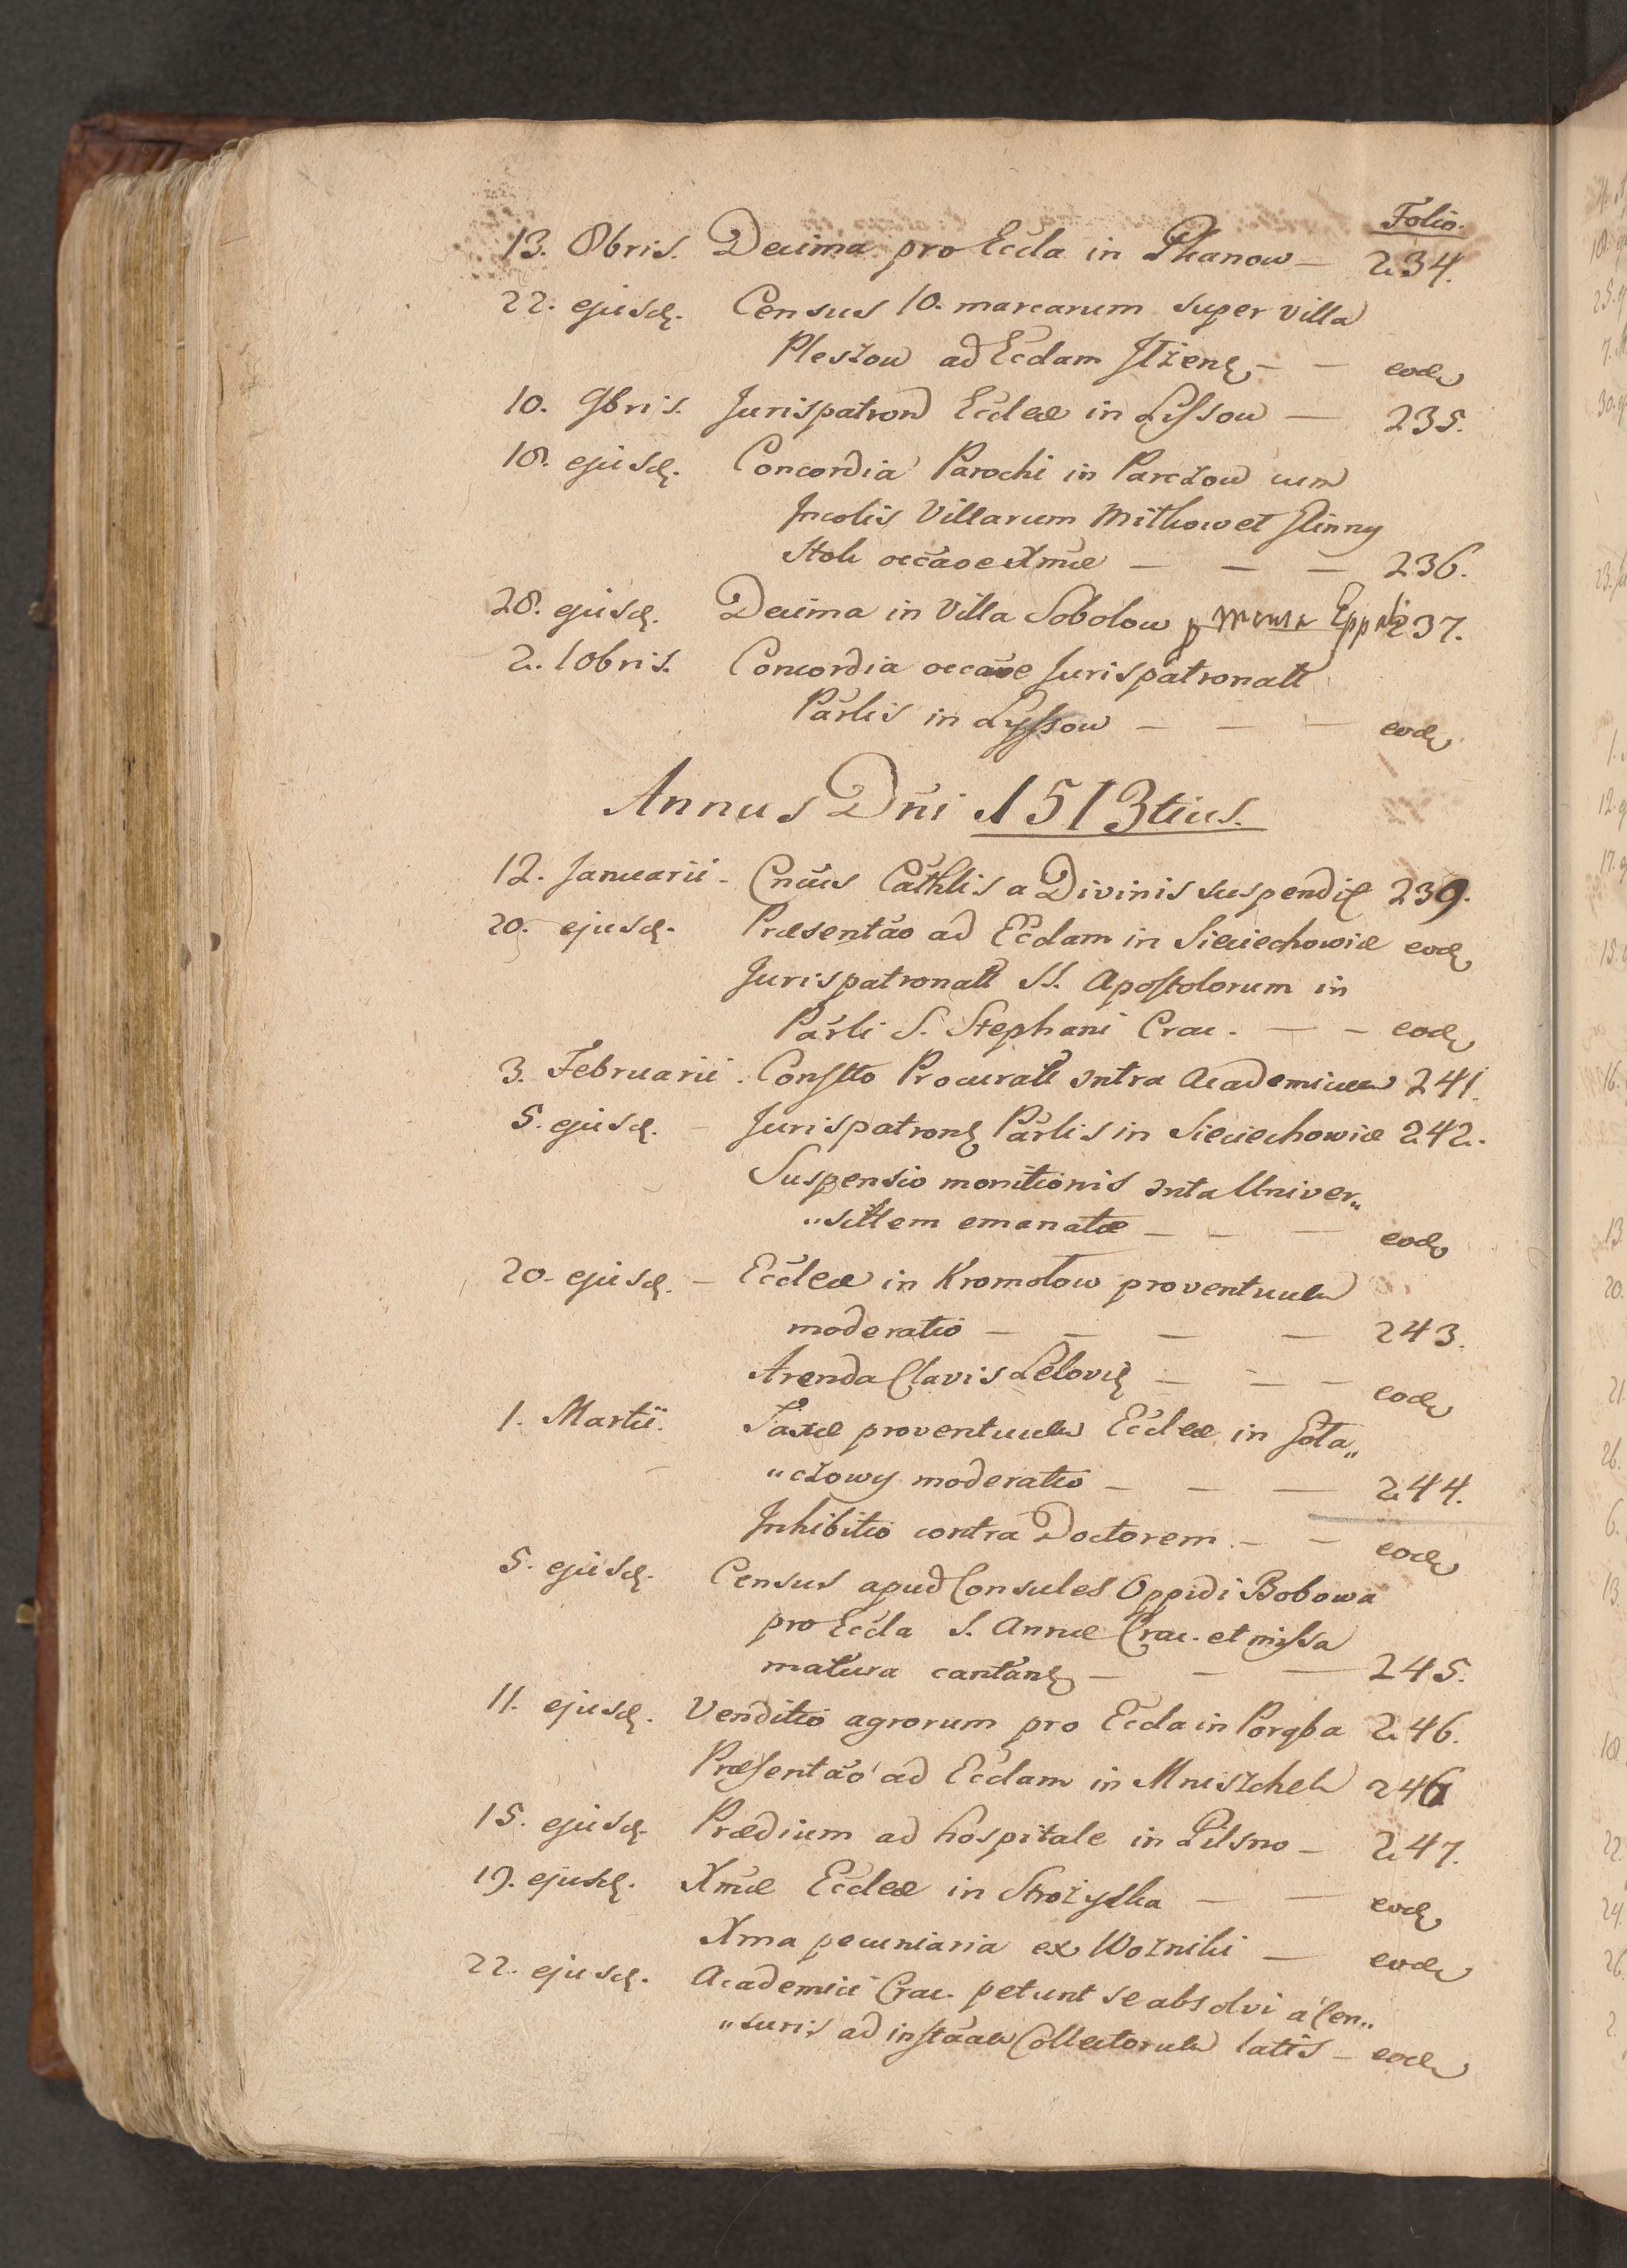 Folio.
13. 8bris. Decima pro Eccla in Pkanow — 234.
22. ejusd. Census 10. marcarum super villa
Pleszow ad Eccłam Iłżen — — eod
10. 9bris. Jurispatron Eccleæ in Lissow — 235.
18. ejusd. Concordia Parochi in Parczow cum
Incolis Villarum Mitkow et Glinny
Stok occãoe Xmæ — — — 236.
28. ejusd. Decima in Villa Sobolow p Mensa Eppali 237.
2. 10bris. Concordia occãoe Jurispatronatt
Pãrlis in Lyssow — — — eod
Annus Dñi 1513tius.
12. Januarii — Cnãus Cãthlis a Divinis suspendit 239.
20. ejusd. Præsentão ad Eccłam in Sieciechowicæ eod
Jurispatronatt SS. Apostolorum in
Pãrli S. Stephani Crac. — — eod
3. Februarii. Consttto Procurat ɔntra Academicu 241.
5. ejusd. — Jurispatron Pãrlis in Sieciechowicæ 242.
Suspensio monitionis ɔnta Univer„
„sittem emanatæ — — — eod
20. ejusd. — Eccleæ in Kromołow proventuu
moderatio — — — — 243.
Arenda Clavis Lelovi — — — eod
1. Martii. Taxæ proventuu Eccleæ in Goła„
„czowy moderatio — — — 244.
Inhibitio contra Doctorem — — eod
5. ejusd. Census apud Consules Oppidi Bobowa
pro Eccla S. Annæ Crac. et missa
matura cantan — — — 245.
11. ejusd. Venditio agrorum pro Eccla in Poręba 246.
Præsentão ad Eccłam in Mniszche 246
15. ejusd. Prædium ad hospitale in Pilsno — 247.
19. ejusd. Xmæ Eccleæ in Strożyska — — eod
Xma pecuniaria ex Woźniki — eod
22. ejusd. Academici Crac. petunt se absolvi a Cen„
„suris ad instãa Collectoru latis — eod